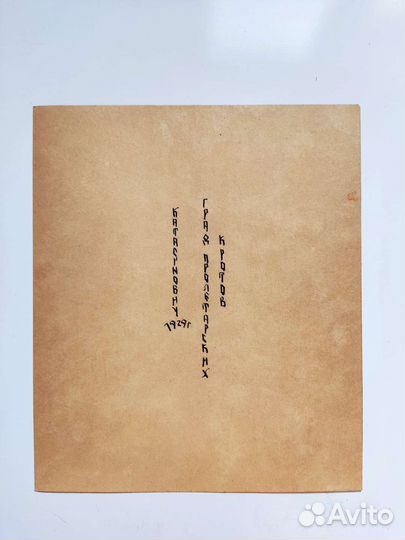 КРОТОВ
ГРАФ ПРОЛЕТАРСКИХ
1929г
Avito